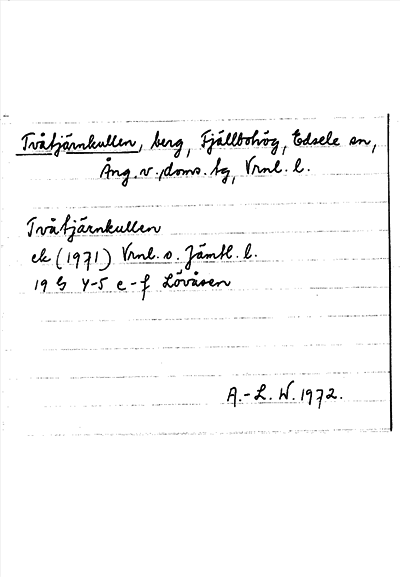 Tvåtjärnkullen, berg, Fjällbohög, Edsele sn,
Ång. v. doms. tg, Vrnl. l.
Tvåtjärnkullen
ek (1971) Vrnl. o. Jämtl. l.
19 G 4-5 e-f Lövåsen
A.-L. W. 1972.